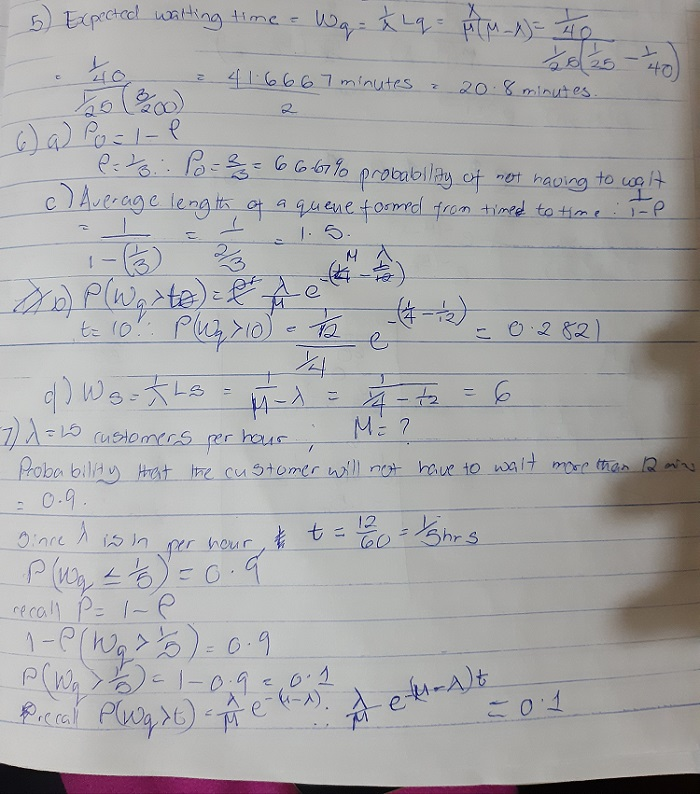 5) Expected waiting time = Wq = 1/λ Lq = λ/μ(μ-λ) = 1/40 / 1/25(1/25 - 1/40)
= 1/40 / 1/25(3/200) = 41.6667 minutes = 20.8 minutes.
2
6) a) P0 = 1 - ρ
ρ = 1/3 ∴ P0 = 2/3 = 66.67% probability of not having to wait
c) Average length of a queue formed from timed to time : 1/1-ρ
= 1/1-(1/3) = 1/2/3 = 1.5.
b) P(Wq > t) = λ/μ e -(μ - λ)
t = 10 ∴ P(Wq > 10) = 1/12 / 1/4 e -(1/4 - 1/12) = 0.2821
d) Ws = 1/λ Ls = 1/μ-λ = 1/ 1/4 - 1/12 = 6
7) λ = 15 customers per hour ; μ = ?
Probability that the customer will not have to wait more than 12 mins
= 0.9.
Since λ is in per hour, t = 12/60 = 1/5 hrs
P(Wq ≤ 1/5) = 0.9
recall P = 1 - ρ
1 - P(Wq > 1/5) = 0.9
P(Wq > 1/5) = 1 - 0.9 = 0.1
recall P(Wq > t) = λ/μ e -(μ-λ) ∴ λ/μ e -(μ-λ)t = 0.1